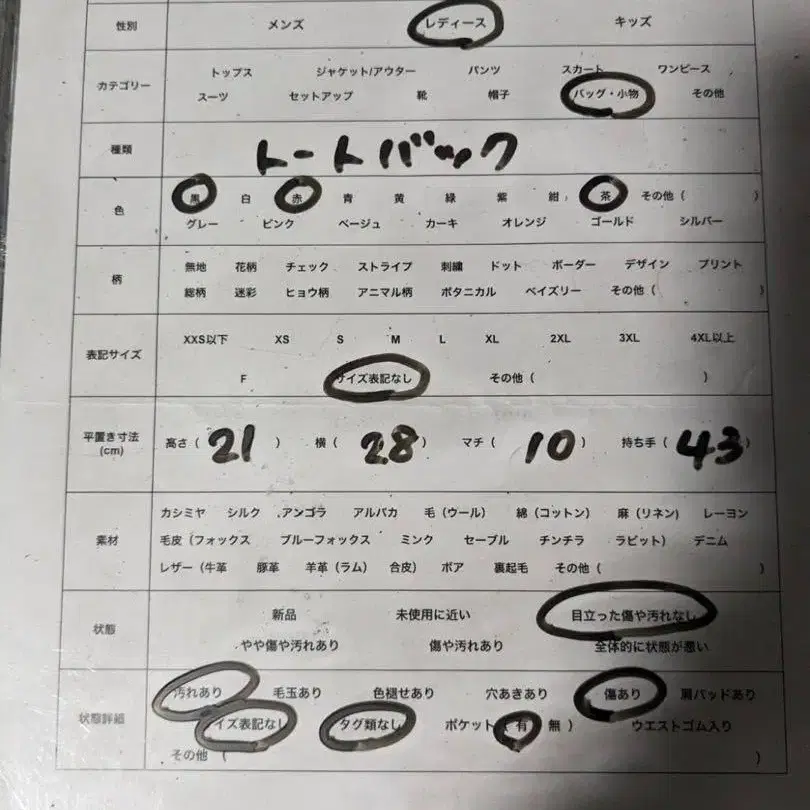 性別 メンズ レディース キッズ
カテゴリー トップス ジャケット/アウター パンツ スカート ワンピース
スーツ セットアップ 靴 帽子 バッグ・小物 その他
種類 トートバック
色 黒 白 赤 青 黄 緑 紫 紺 茶 その他 ( )
グレー ピンク ベージュ カーキ オレンジ ゴールド シルバー
柄 無地 花柄 チェック ストライプ 刺繍 ドット ボーダー デザイン プリント
総柄 迷彩 ヒョウ柄 アニマル柄 ボタニカル ペイズリー その他 ( )
表記サイズ XXS以下 XS S M L XL 2XL 3XL 4XL以上
F サイズ表記なし その他 ( )
平置き寸法 (cm) 高さ ( 21 ) 横 ( 28 ) マチ ( 10 ) 持ち手 ( 43 )
素材 カシミヤ シルク アンゴラ アルパカ 毛 (ウール) 綿 (コットン) 麻 (リネン) レーヨン
毛皮 (フォックス ブルーフォックス ミンク セーブル チンチラ ラビット) デニム
レザー (牛革 豚革 羊革 (ラム) 合皮) ボア 裏起毛 その他 ( )
状態 新品 未使用に近い 目立った傷や汚れなし
やや傷や汚れあり 傷や汚れあり 全体的に状態が悪い
状態詳細 汚れあり 毛玉あり 色褪せあり 穴あきあり 傷あり 肩パッドあり
イズ表記なし タグ類なし ポケット ( 有 無 ) ウエストゴム入り
その他 ( )